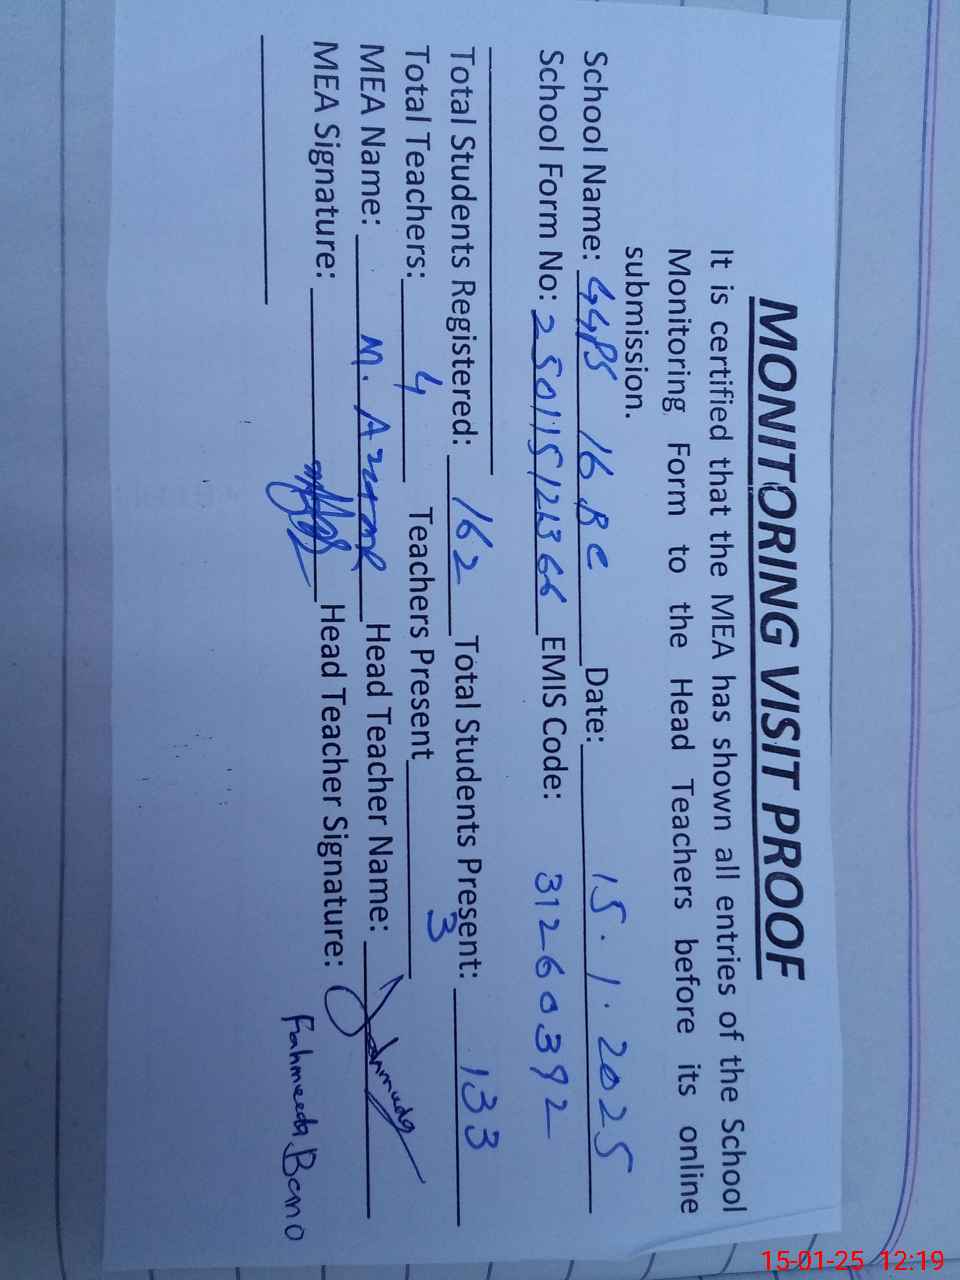 MONITORING VISIT PROOF
It is certified that the MEA has shown all entries of the School
Monitoring Form to the Head Teachers before its online
submission.
School Name: GGPS 16 BC Date: 15.1.2025
School Form No: EMIS Code: 31260392
Total Students Registered: 162 Total Students Present: 133
Total Teachers: 4 Teachers Present 3
MEA Name: M. Head Teacher Name:
MEA Signature: Head Teacher Signature:
Fahmeeda Bano
15-01-25 12:19